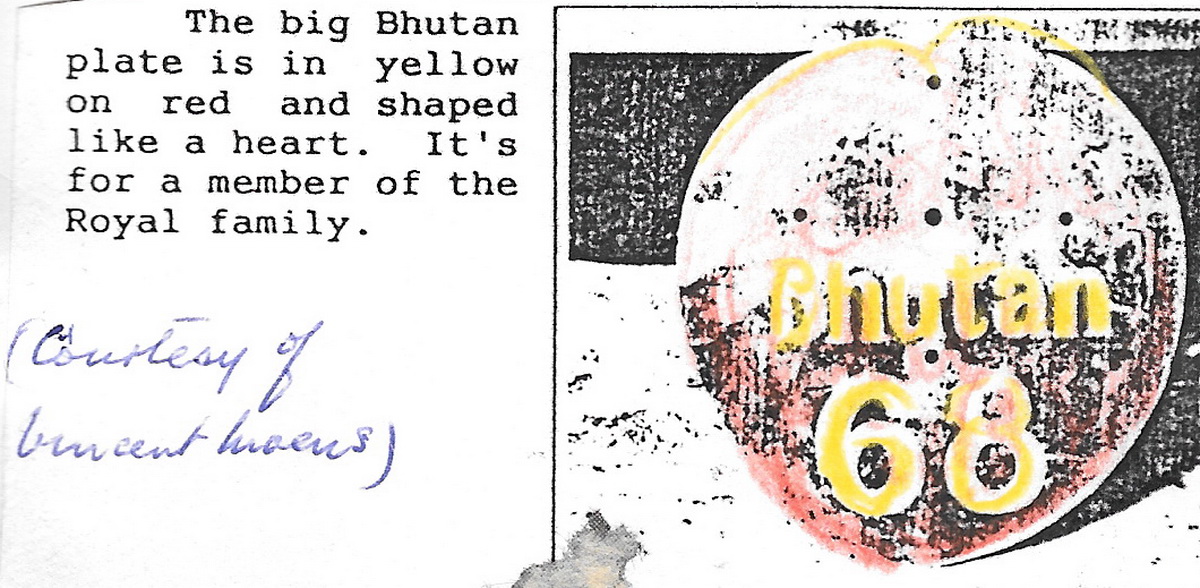 The big Bhutan
plate is in yellow
on red and shaped
like a heart. It's
for a member of the
Royal family.
(Courtesy of
Vincent Moens)
Bhutan
68